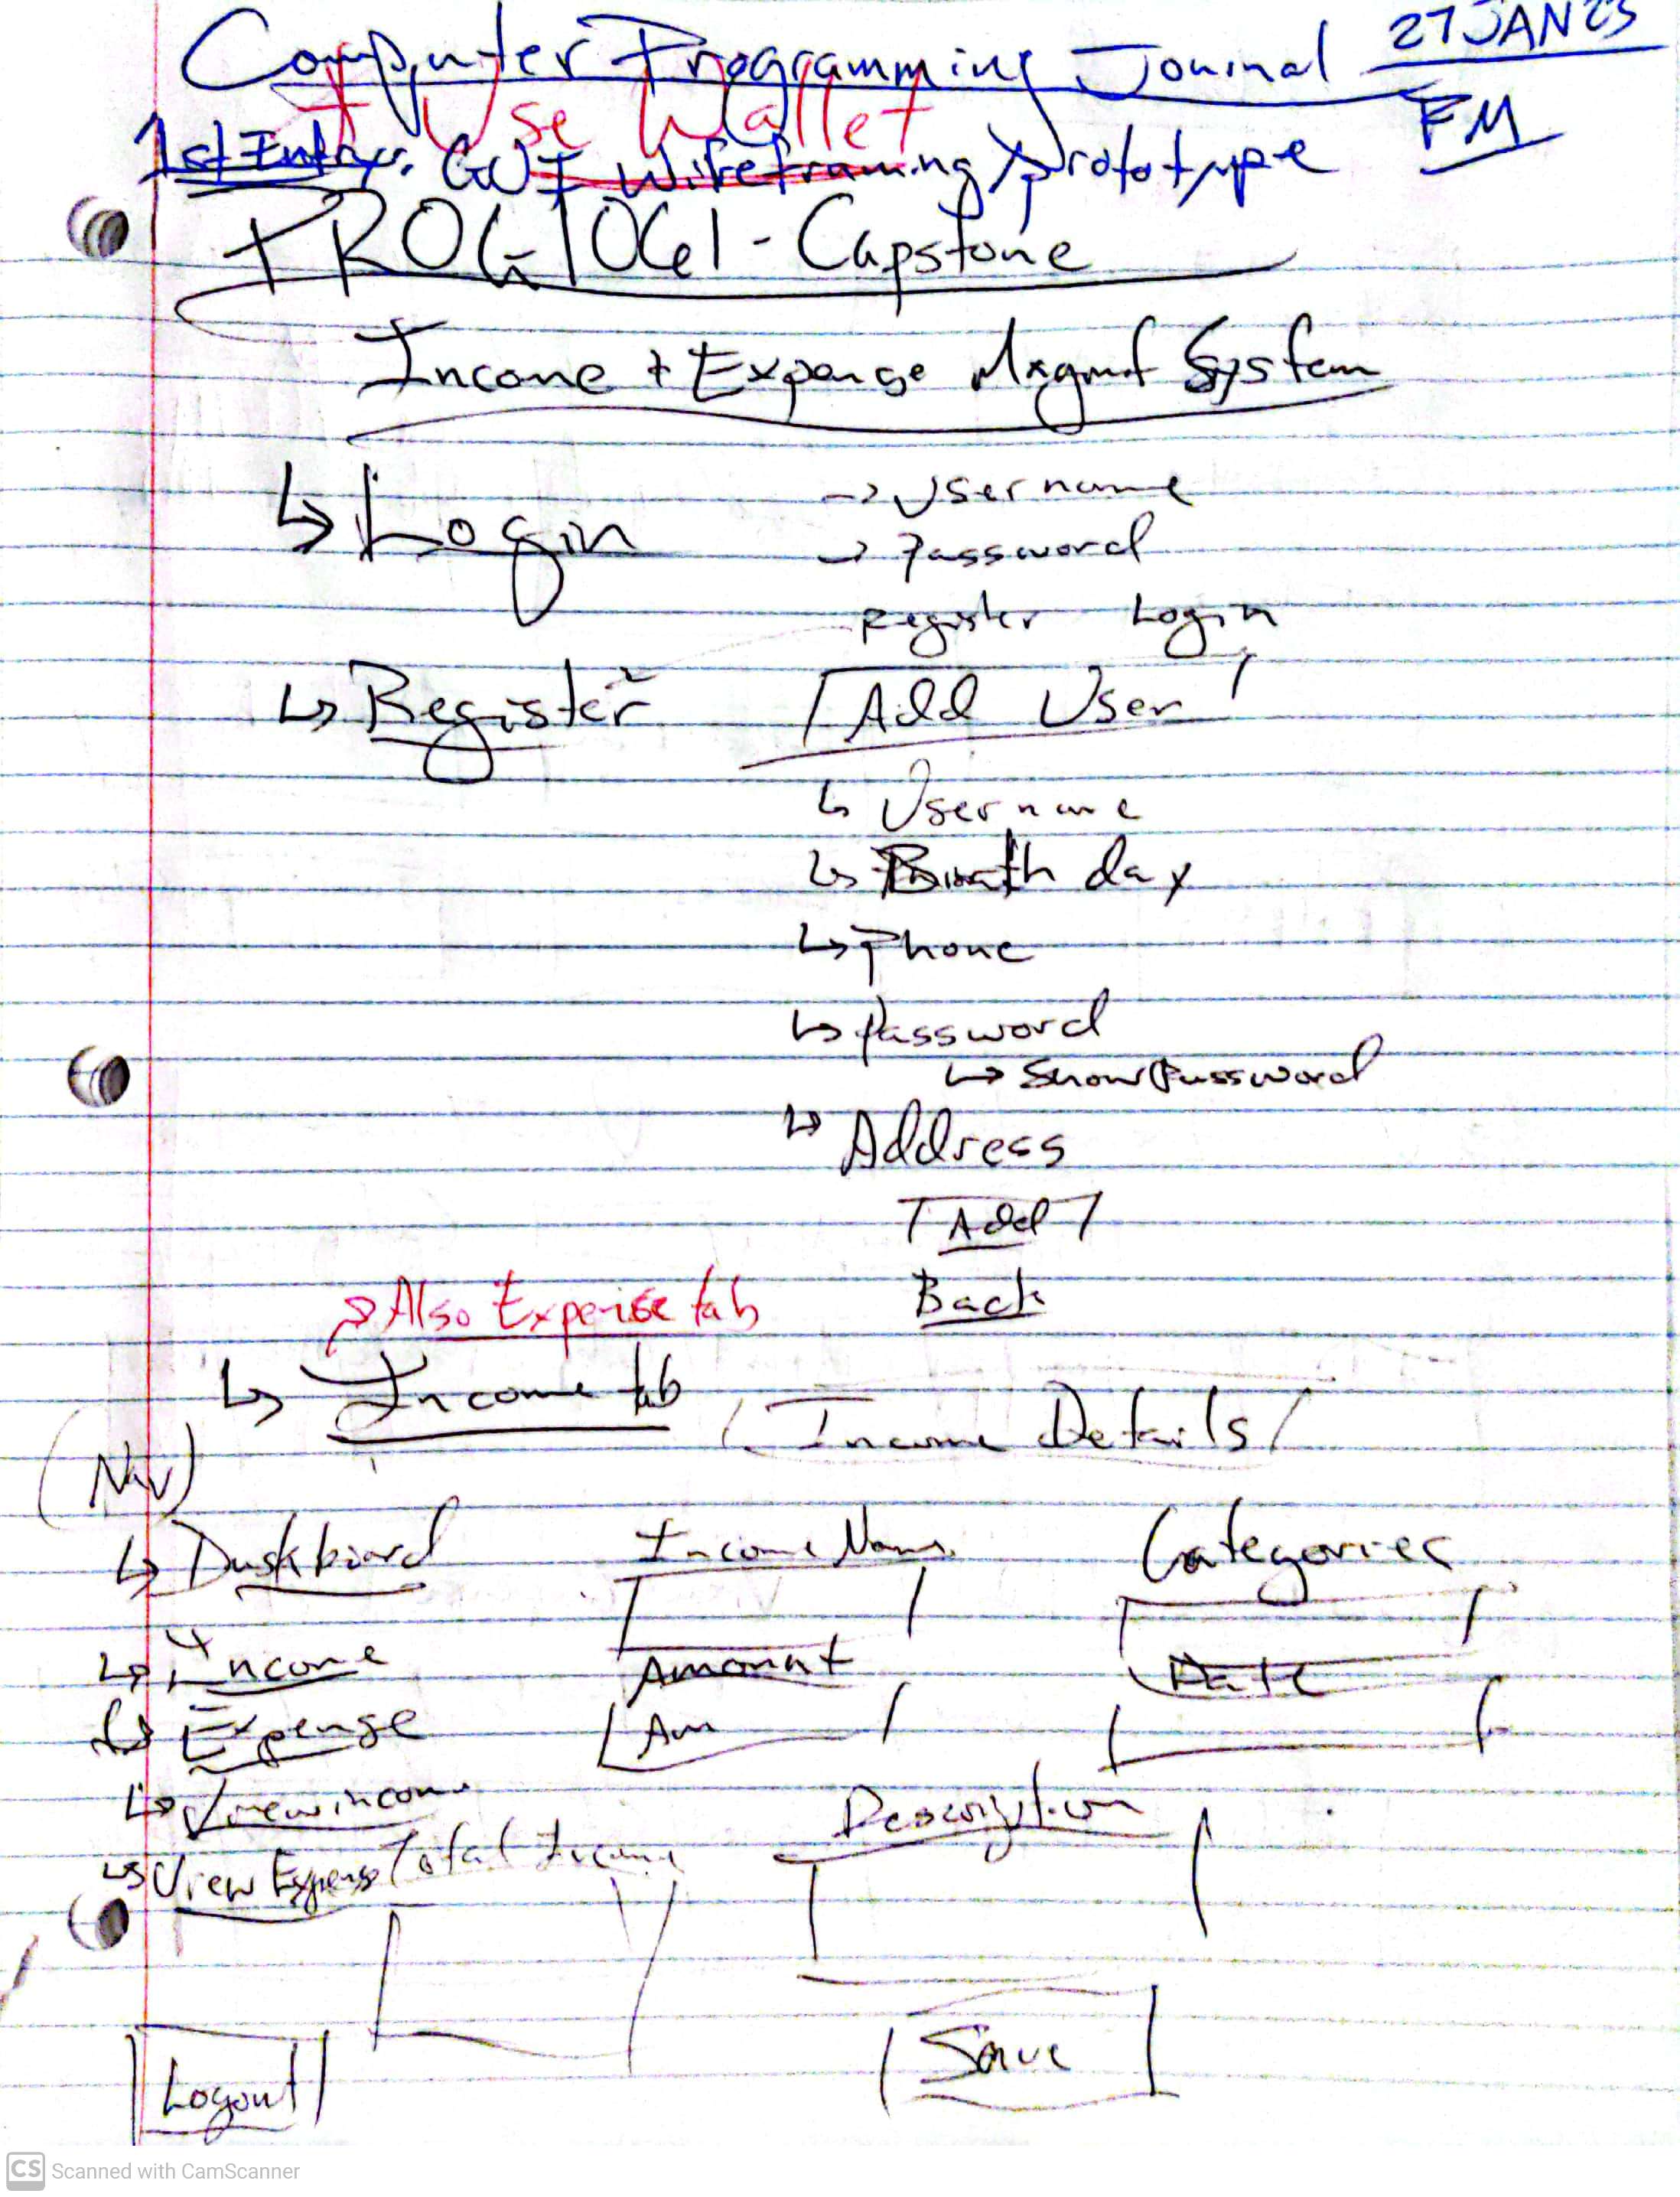 Computer Programming Journal 27 JAN 23
Use Wallet FM
1st Entry: GUI Wireframing Prototype
PROG1061 - Capstone
Income + Expense Mngmt System
↳ Login → Username
→ Password
Register Login
↳ Register Add User
↳ Username
↳ Birth day
↳ Phone
↳ Password
↳ Show Password
↳ Address
Add
Back
→ Also Expense tab
↳ Income tab Income Details
(Nav)
↳ Dashboard Income Name Categories
↳ Income Amount Date
↳ Expense Am
↳ View income Description
↳ View Expense Total Income
Save
Logout
CS Scanned with CamScanner